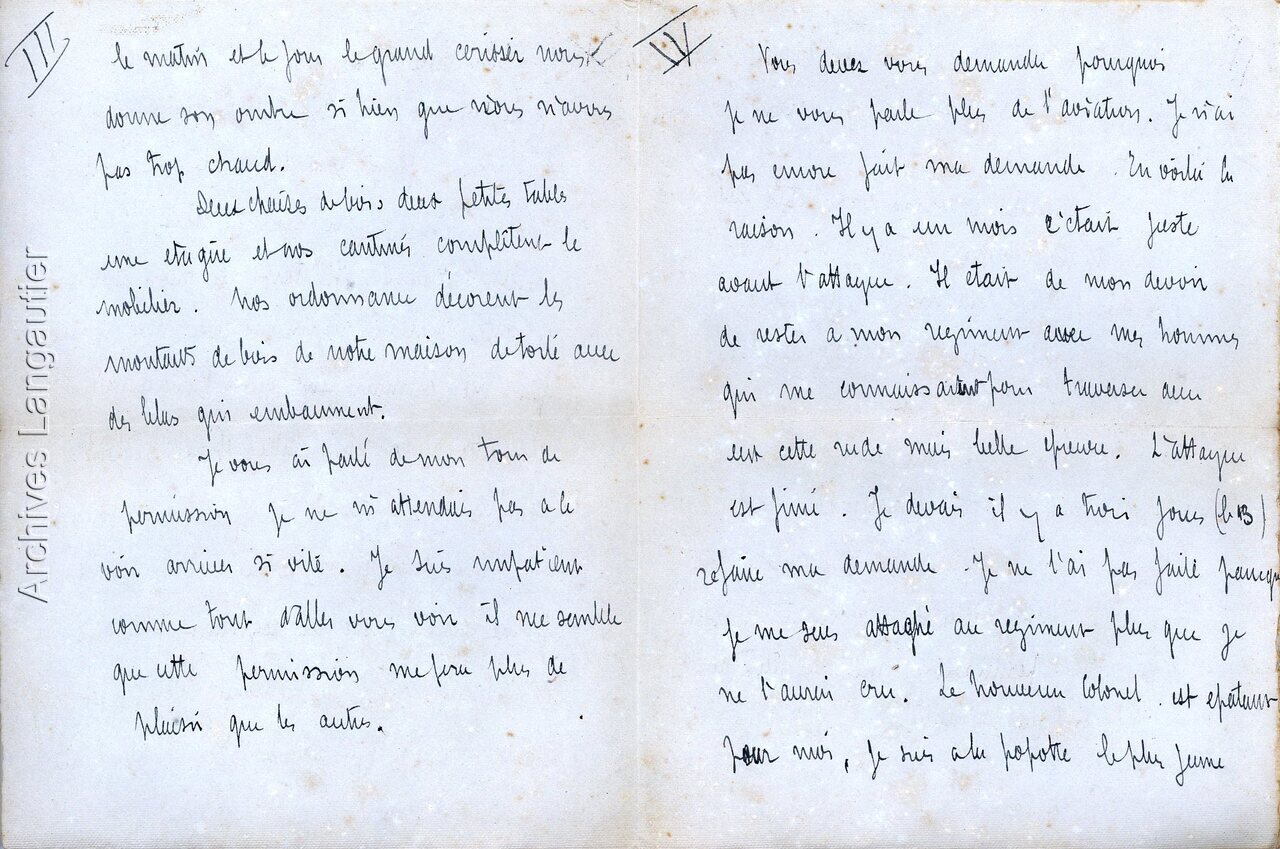 III
le matin et le jour le grand cerisier nous
donne son ombre si bien que nous n'avons
pas trop chaud.
Deux chaises de bois deux petites tables
une etagère et nos cantines complètent le
mobilier. Nos ordonnances décorent les
montants de bois de notre maison de toile avec
des lilas qui embaument.
Je vous ai parlé de mon tour de
permission je ne m'attendais pas a le
voir arriver si vite. Je suis impatient
comme tout d'aller vous voir il me semble
que cette permission me fera plus de
plaisir que les autres.
IV
Vous devez vous demander pourquoi
je ne vous parle plus de l'aviation. Je n'ai
pas encore fait ma demande. En voila la
raison. Il y a un mois c'était juste
avant l'attaque. Il etait de mon devoir
de rester a mon regiment avec mes hommes
qui me connaissaient pour traverser avec
eux cette rude mais belle epreuve. L'attaque
est finie. Je devais il y a trois jours (le 13)
refaire ma demande. Je ne l'ai pas faite parceque
je me suis attaché au regiment plus que je
ne l'aurai cru. Le nouveau Colonel est epatant
pour moi, je suis a la popotte le plus jeune
Archives Langautier